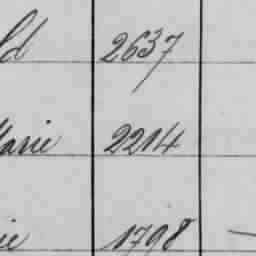 ld 2637
Marie 2214
ie 1798